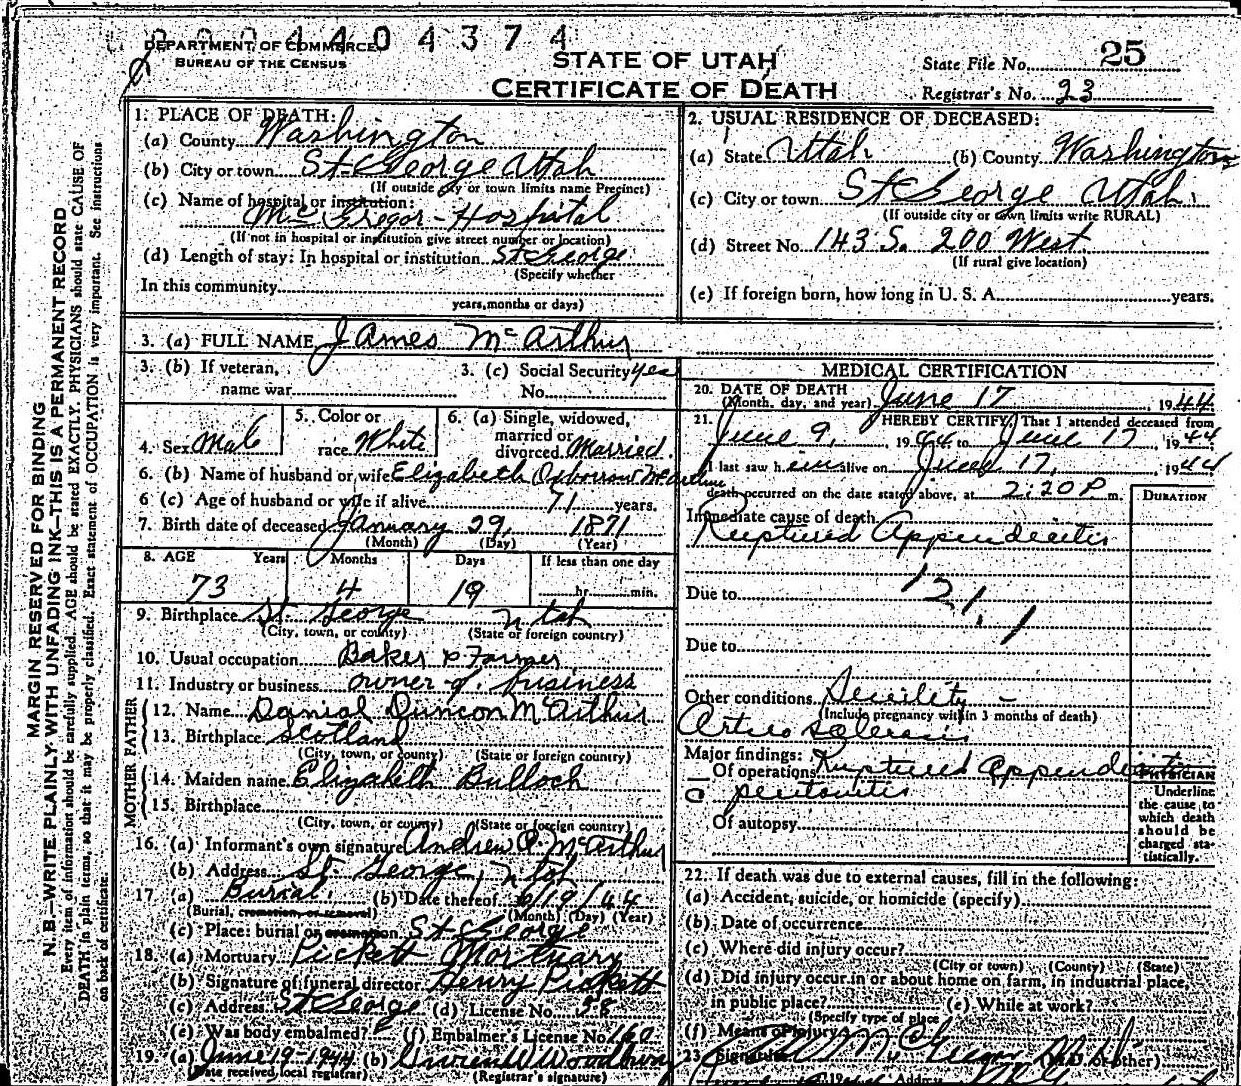 0 0 4 4 0 4 3 7 4
DEPARTMENT OF COMMERCE
BUREAU OF THE CENSUS
STATE OF UTAH
CERTIFICATE OF DEATH
State File No. 25
Registrar's No. 23
MARGIN RESERVED FOR BINDING
N. B.—WRITE PLAINLY WITH UNFADING INK—THIS IS A PERMANENT RECORD
Every item of information should be carefully supplied. AGE should be stated EXACTLY. PHYSICIANS should state CAUSE OF
DEATH in plain terms, so that it may be properly classified. Exact statement of OCCUPATION is very important. See instructions
on back of certificate.
1. PLACE OF DEATH:
(a) County Washington
(b) City or town St George Utah
(If outside city or town limits name Precinct)
(c) Name of hospital or institution:
McGregor-Hospital
(If not in hospital or institution give street number or location)
(d) Length of stay: In hospital or institution St George
(Specify whether
In this community
years, months or days)
2. USUAL RESIDENCE OF DECEASED:
(a) State Utah (b) County Washington
(c) City or town St George Utah.
(If outside city or town limits write RURAL)
(d) Street No. 143 So. 200 West
(If rural give location)
(e) If foreign born, how long in U. S. A. years.
3. (a) FULL NAME James McArthur
3. (b) If veteran, 3. (c) Social Security yes
name war No.
4. Sex Male
5. Color or
race White
6. (a) Single, widowed,
married or
divorced Married.
6. (b) Name of husband or wife Elizabeth McArthur
6 (c) Age of husband or wife if alive 71 years.
7. Birth date of deceased January 29, 1871
(Month) (Day) (Year)
8. AGE Years Months Days If less than one day
73 4 19 hr. min.
9. Birthplace St. George Utah
(City, town, or county) (State or foreign country)
10. Usual occupation Baker & Farmer
11. Industry or business owner of business
FATHER
12. Name Danial Duncon McArthur
13. Birthplace Scotland
(City, town, or county) (State or foreign country)
MOTHER
14. Maiden name Elizabeth Bulloch
15. Birthplace
(City, town, or county) (State or foreign country)
16. (a) Informant's own signature Andrew McArthur
(b) Address St. George, Utah
17. (a) Burial. (b) Date thereof 6/19/44
(Burial, cremation, or removal) (Month) (Day) (Year)
(c) Place: burial or cremation St George
18. (a) Mortuary Pickett Mortuary
(b) Signature of funeral director Henry Pickett
(c) Address St George (d) License No. 58
(e) Was body embalmed? (f) Embalmer's License No. 160
19. (a) June 19-1944 (b)
(Date received, local registrar) (Registrar's signature)
MEDICAL CERTIFICATION
20. DATE OF DEATH
(Month, day, and year) June 17 1944
21. I HEREBY CERTIFY, That I attended deceased from
June 9, 1944 to June 17 1944
I last saw him alive on June 17, 1944
death occurred on the date stated above, at 2:20 P m.
DURATION
Immediate cause of death
Ruptured Appendicitis
121.1
Due to
Due to
Other conditions Senility -
(Include pregnancy within 3 months of death)
Arterio sclerosis
Major findings:
Of operations Ruptured Appendicitis
peritonitis
Of autopsy
PHYSICIAN
Underline
the cause to
which death
should be
charged sta-
tistically.
22. If death was due to external causes, fill in the following:
(a) Accident, suicide, or homicide (specify)
(b) Date of occurrence
(c) Where did injury occur?
(City or town) (County) (State)
(d) Did injury occur in or about home on farm, in industrial place,
in public place? (e) While at work?
(Specify type of place
(f) Means of injury
23. Signature McGregor (M.D. or other)